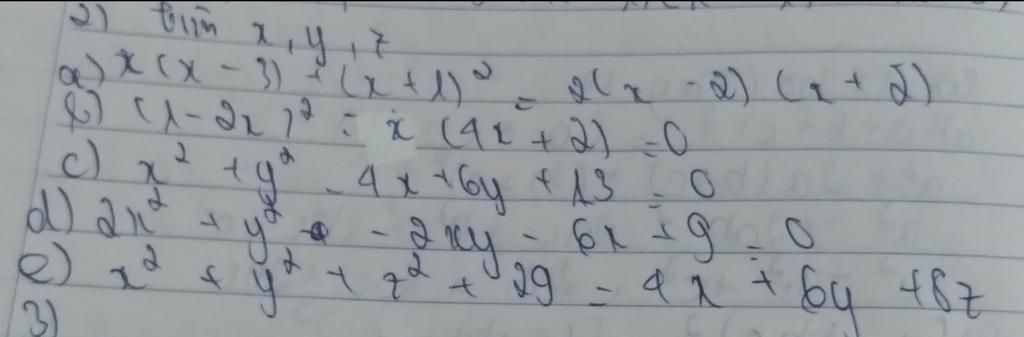 2) tìm x, y, z
a) x(x - 3) + (x + 1)² = 2(x - 2)(x + 2)
b) (1 - 2x)² = x(4x + 2) = 0
c) x² + y² - 4x + 6y + 13 = 0
d) 2x² + y² - 2xy - 6x + 9 = 0
e) x² + y² + z² + 29 = 4x + 6y + 8z
3)